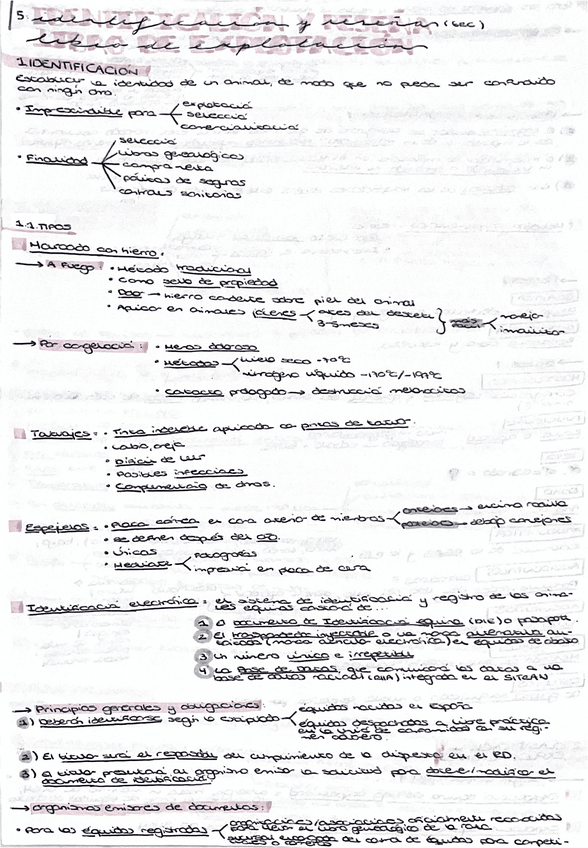 5. identificación y reseña (sec)
libro de explotación
1. IDENTIFICACIÓN
Establecer la identidad de un animal, de modo que no pueda ser confundido
con ningún otro.
• Imprescindible para
explotació
selecció
comercialització
• Finalidad
selecció
libros genealógicos
compraventa
pólizas de seguros
controles sanitarios
1.1. TIPOS
Marcado con hierro.
→ A fuego:
• Método tradicional
• Como sello de propiedad
• Dolor → hierro candente sobre piel del animal
• Aplicar en animales jóvenes
antes del destete
3-5 meses
manejo
inmovilitzar
→ Por congelació:
• Menos doloroso
• Métodos
hielo seco -70ºC
nitrógeno líquido
• Contacto prolongado → destrucció melanocitos
Tatuajes:
• Tinta indeleble aplicada con pinzas de tatuar.
• Labio, oreja
• Difícil de leer
• Posibles infecciones
• Complementario de otros.
Espejuelos:
• Placa córnea en cara interior de miembros
anteriores → encima rodilla
posteriores → debajo corvejones
• Se definen después del año.
• Únicos
• Mediante
fotografías
impresió en placa de cera
Identificació electrónica: el sistema de identificació y registro de los anima-
les equinos constará de...
1 Documento de Identificació equina (DIE) o pasaporte.
2 El transpondedor inyectable o una marca auricular au-
torizada (marca auricular electrónica) en équidos de abasto
3 Un número único e irrepetible
4 La Base de Datos, que comunicará los datos a una
base de datos nacional (RIIA) integrada en el SITRAN
→ Principios generales y obligaciones:
1) Deberán identificarse según lo estipulado
équidos nacidos en España
équidos despachados a libre práctica
2) El titular será el responsable del cumplimiento de lo dispuesto en el RD.
3) El titular presentará al organismo emisor la solicitud para obtener/modificar el
documento de identificación
→ organismos emisores de documentos:
• Para los équidos registrados
organizaciones/asociaciones oficialmente reconocidas
para llevar el libro genealógico de la raza